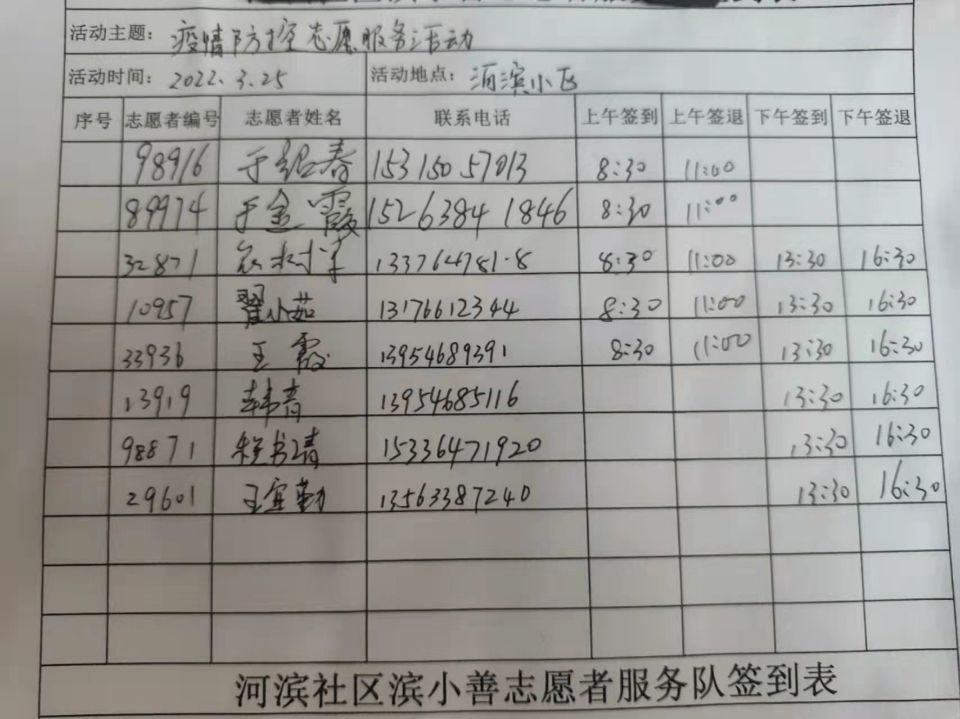 活动主题: 疫情防控志愿服务活动
活动时间: 2022.3.25 活动地点: 河滨小区
序号 志愿者编号 志愿者姓名 联系电话 上午签到 上午签退 下午签到 下午签退
98916 于绍春 15315057013 8:30 11:00
89974 于金霞 15263841846 8:30 11:00
32871 8:30 11:00 13:30 16:30
10957 翟小茹 13176612344 8:30 11:00 13:30 16:30
33936 王霞 13954689391 8:30 11:00 13:30 16:30
13919 韩青 13954685116 13:30 16:30
98871 程书靖 15336471920 13:30 16:30
29601 王宜勤 13563387240 13:30 16:30
河滨社区滨小善志愿者服务队签到表